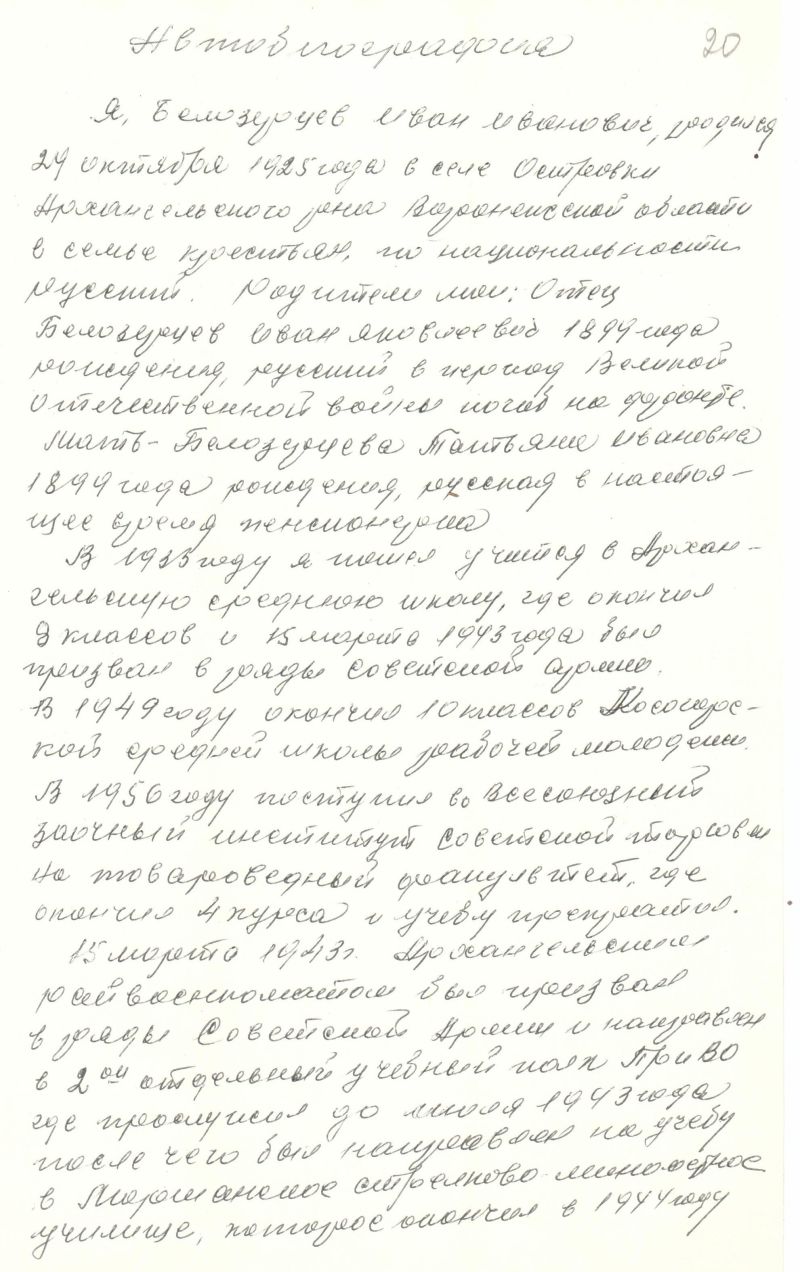 Автобиография 20
Я, Белозерцев Иван Иванович, родился
24 октября 1925 года в селе Островки
Архангельского р-на Воронежской области
в семье крестьян, по национальности
русский. Родители мои: Отец
Белозерцев Иван Яковлевич 1899 года
рождения, русский в период Великой
Отечественной войны погиб на фронте.
Мать - Белозерцева Татьяна Ивановна
1899 года рождения, русская в настоя-
щее время пенсионерка
В 1933 году я пошел учится в Архан-
гельскую среднюю школу, где окончил
9 классов и 15 марта 1943 года был
призван в ряды Советской армии.
В 1949 году окончил 10 классов Косогорс-
кой средней школы рабочей молодежи.
В 1956 году поступил во Всесоюзный
заочный институт советской торговли
на товароведный факультет, где
окончил 4 курса и учебу прекратил.
15 марта 1943 г. Архангельским
райвоенкоматом был призван
в ряды Советской Армии и направлен
в 2ой отдельный учебный полк ПриВО
где прослужил до июля 1943 года
после чего был направлен на учебу
в Моршанское стрелково-минометное
училище, которое окончил в 1944 году